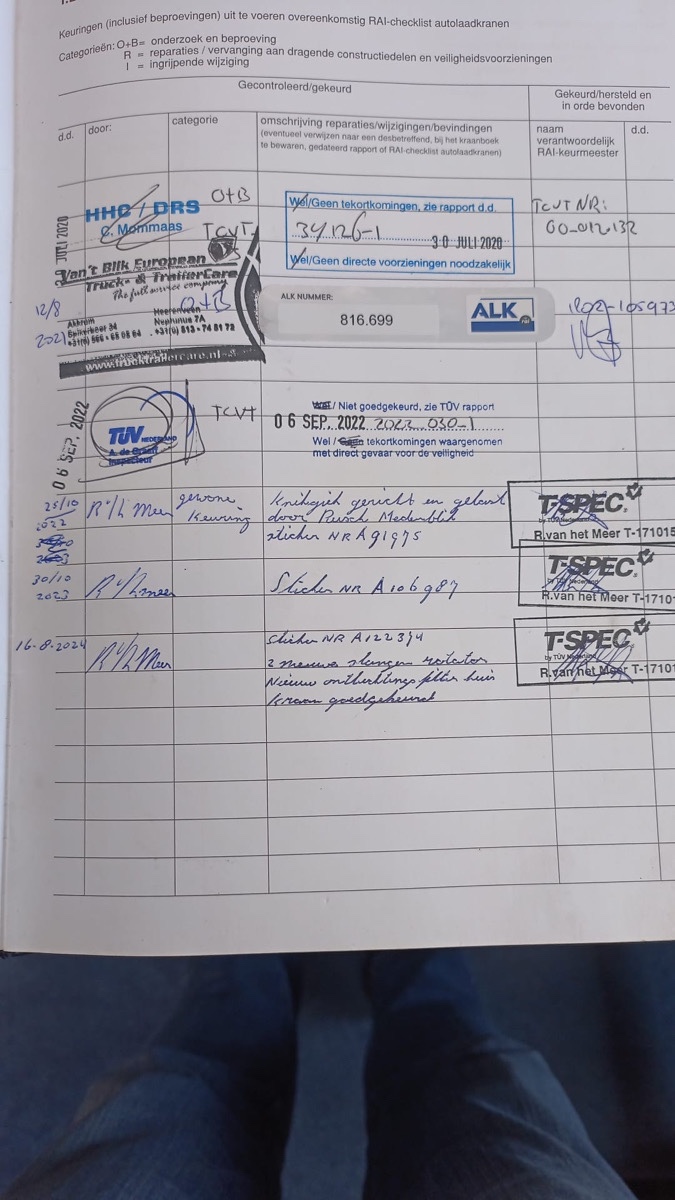 Keuringen (inclusief beproevingen) uit te voeren overeenkomstig RAI-checklist autolaadkranen
Categorieën: O+B= onderzoek en beproeving
R = reparaties / vervanging aan dragende constructiedelen en veiligheidsvoorzieningen
I = ingrijpende wijziging
Gecontroleerd/gekeurd
Gekeurd/hersteld en
in orde bevonden
d.d.
door:
categorie
omschrijving reparaties/wijzigingen/bevindingen
(eventueel verwijzen naar een desbetreffend, bij het kraanboek
te bewaren, gedateerd rapport of RAI-checklist autolaadkranen)
naam
verantwoordelijk
RAI-keurmeester
d.d.
JULI 2020
HHC / DRS
C. Mommaas
O+B
TCVT
Wel/Geen tekortkomingen, zie rapport d.d.
34126-1
30 JULI 2020
Wel/Geen directe voorzieningen noodzakelijk
TCVT NR:
60-012132
Van't Blik European
Truck- & TrailerCare
The full service company
12/8
2021
O+B
Akkrum
Heerenveen
Neptunus 7A
+31(0) 513 - 74 81 72
www.trucktrailercare.nl
ALK NUMMER:
816.699
ALK
06 SEP. 2022
TÜV NEDERLAND
A. de Graaf
Inspecteur
TCVT
Wel / Niet goedgekeurd, zie TÜV rapport
06 SEP. 2022 2022 030-1
Wel / Geen tekortkomingen waargenomen
met direct gevaar voor de veiligheid
25/10
2022
R v/h Meer
gewone
keuring
gericht en gelast
door
sticker NR A91975
T-SPEC.
by TÜV Nederland
R.van het Meer T-171015
30/10
2023
R v/h meer
Sticker NR A106987
T-SPEC.
by TÜV Nederland
R.van het Meer T-1710
16-8-2024
R v/h Meer
sticker NR A122374
2 nieuwe slangen rotator
Nieuw ontluchtings filter huis
kraan goedgekeurd
T-SPEC.
by TÜV Nederland
R.van het Meer T-1710